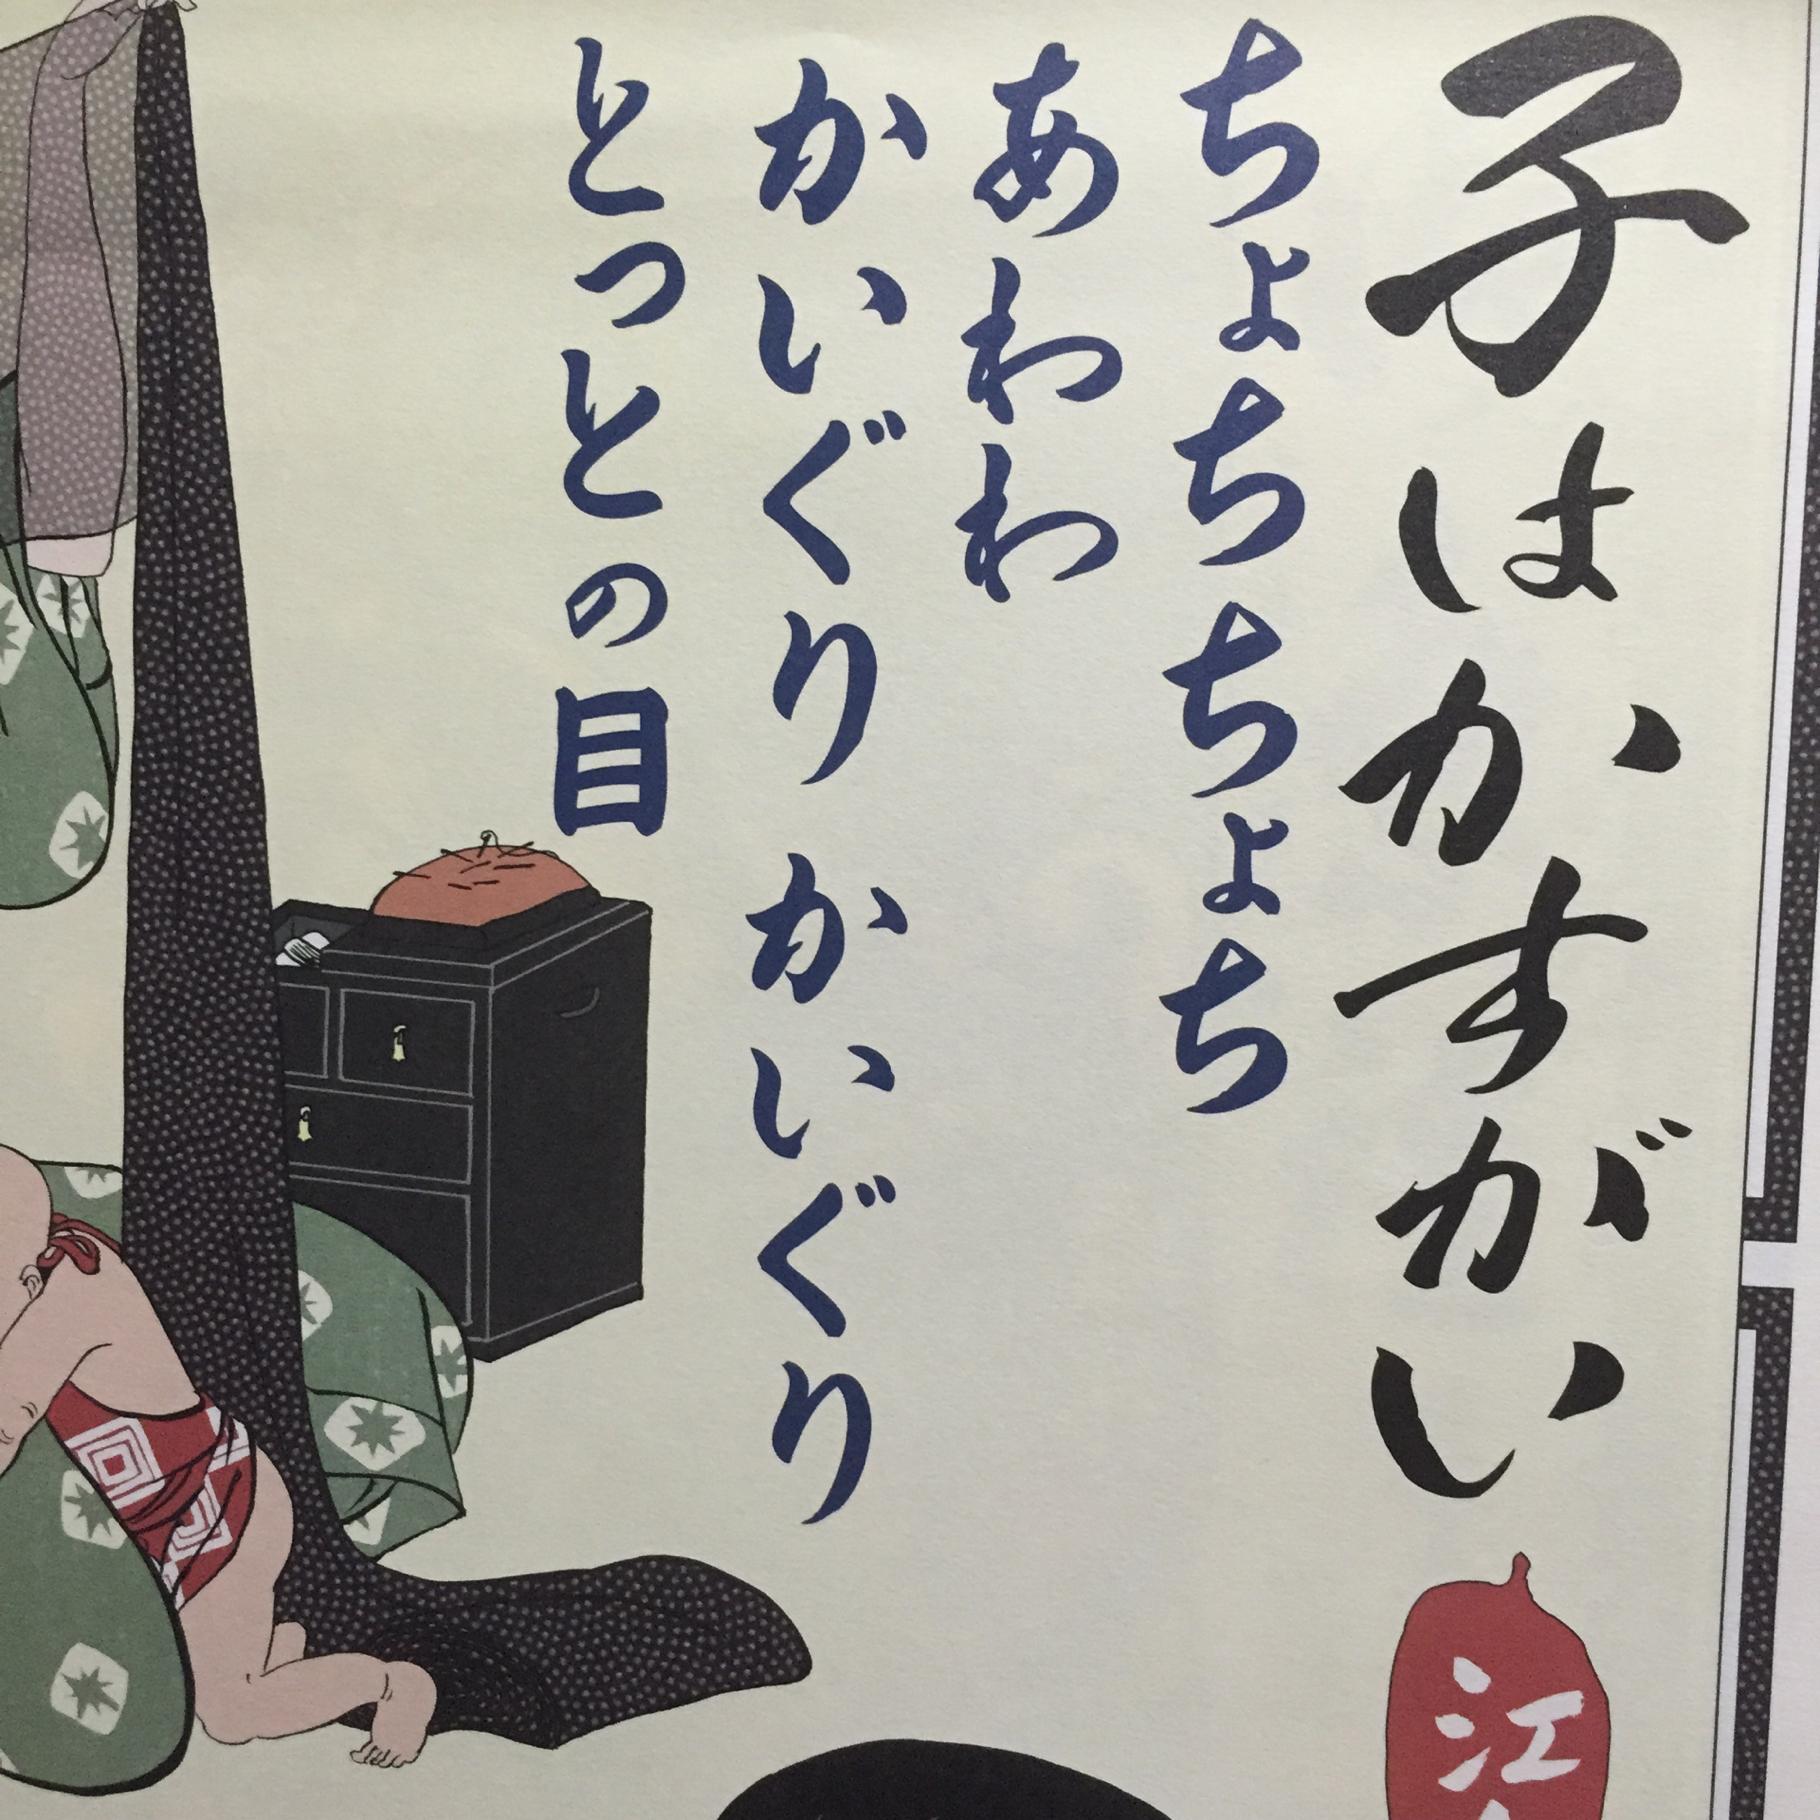 子はかすがい
ちょちちょち
あわわ
かいぐりかいぐり
とっとの目
江